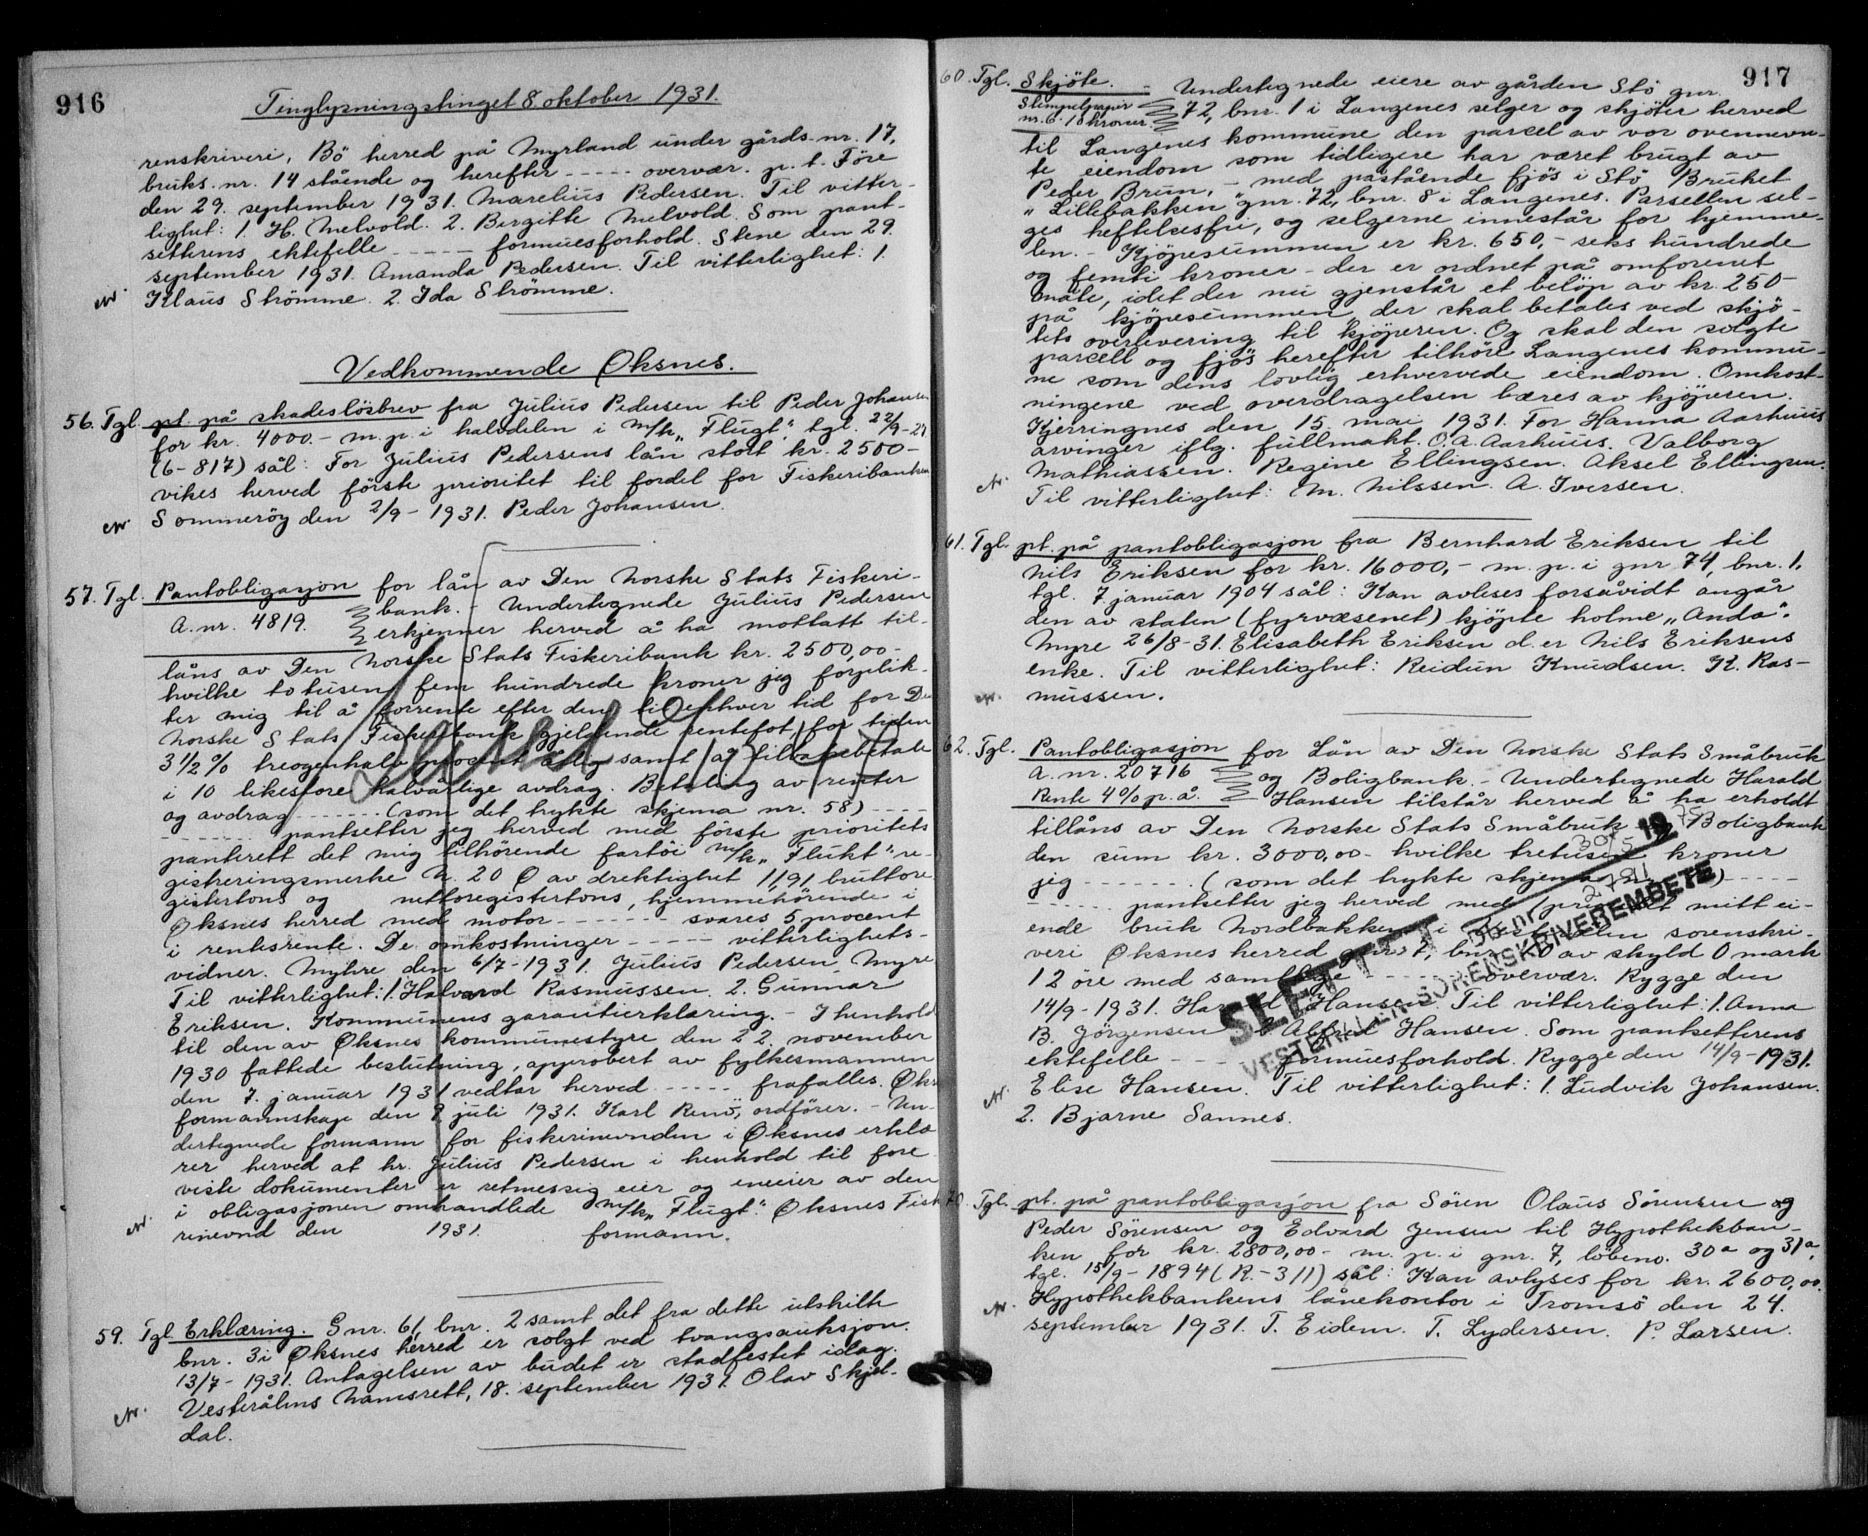 916
Tinglysningstinget 8 oktober 1931.
renskriveri, Bö herred på Myrland under gårds. nr. 17,
bruks. nr. 14 stående og herefter - - - - - overvær. p. t. Före
den 29. september 1931. Marelius Pedersen. Til vitter-
lighet: 1. H. Melvold. 2. Birgitte Melvold. Som pant-
setterens ektefelle - - - - - formuesforhold. Stene den 29.
september 1931. Amanda Pedersen. Til vitterlighet: 1.
Klaus Strömme. 2. Ida Strömme.
Vedkommende Øksnes.
56. Tgl. pt. på skadeslösbrev fra Julius Pedersen til Peder Johansen
for kr. 4000.- m. p. i halvdelen i m/k „Flugt", tgl. 22/9-27
(6-817) sål: For Julius Pedersens lån stort kr. 2500-
vikes herved förste prioritet til fordel for Fiskeribanken
Sommeröy den 2/9-1931. Peder Johansen.
57. Tgl. Pantobligasjon for lån av Den Norske Stats Fiskeri-
bank. - Undertegnede Julius Pedersen
A. nr. 4819. erkjenner herved å ha mottatt til-
låns av Den Norske Stats Fiskeribank kr. 2500,00-
hvilke totusen fem hundrede kroner jeg forplik-
ter mig til å forrente efter den til enhver tid for Den
Norske Stats Fiskeribank gjeldende rentefot, for tiden
3½% treogenhalv procent årlig samt å tilbakebetale
i 10 likestore halvårlige avdrag. Betaling av renter
og avdrag - - - - - - (som det trykte skjema nr. 58) - - - -
- - - - - - pantsetter jeg herved med förste prioritets
panterett det mig tilhörende fartöi m/k „Flukt" re-
gistreringsmerke N. 20 Ø av drektighet 11,91 bruttore
gistertons og nettoregistertons, hjemmehörende i
Øksnes herred med motor - - - - - - svares 5 procent
i rentesrente. De omkostninger - - - - - vitterlighets-
vidner. Myhre den 6/7-1931. Julius Pedersen, Myre
Til vitterlighet: 1. Halvard Rasmussen. 2. Gunnar
Eriksen. Kommunens garantierklæring. - I henhold
til den av Øksnes kommunestyre den 22. november
1930 fattede beslutning, approbert av fylkesmannen
den 7. januar 1931 vedtar herved - - - - - frafalles. Øksn
formannskap den juli 1931. Karl Renö, ordfører. - Un-
dertegnede formann for fiskerinevnden i Øksnes erklæ
rer herved at hr. Julius Pedersen i henhold til fore
viste dokumenter er retmessig eier og eneeier av den
i obligasjonen omhandlede m/k „Flugt." Øksnes Fiske
rinevnd den 1931. formann.
59. Tgl. Erklæring. Gnr. 61 bnr. 2 samt det fra dette utskilte
bnr. 3 i Øksnes herred er solgt ved tvangsauksjon.
13/7-1931. Antagelsen av budet er stadfestet idag.
Vesterålens Namsrett, 18. september 1931. Olav Skjel-
dal.
917
60. Tgl. Skjöte. - Undertegnede eiere av gården Stö gnr.
Stempelpapir nr. 6-10 kroner. 72, bnr. 1 i Langenes selger og skjöter herved
til Langenes kommune den parcel av vor ovennevn-
te eiendom som tidligere har været brugt av
Peder Brun, - med påstående fjös i Stö Bruket
„Lillebakken" gnr. 72, bnr. 8 i Langenes. Parsellen sel-
ges heftelsesfri, og selgerne innestår for hjemme-
len. - Kjöpesummen er kr. 650,- seks hundrede
og femti kroner - der er ordnet på omforenet
måte, idet der nu gjenstår et belöp av kr. 250-
på kjöpesummen, der skal betales ved skjö-
tets overlevering til kjöperen. Og skal den solgte
parcell og fjös herefter tilhöre Langenes kommu-
ne som dens lovlig erhvervede eiendom. Omkost-
ningene ved overdragelsen bæres av kjöperen.
Kjerringnes den 15. mai 1931. For Hanna Aarhuus
arvinger iflg. fullmakt. O. A. Aarhuus. Valborg
Mathiassen. Regine Ellingsen. Aksel Ellingsen.
Til vitterlighet: M. Nilssen. A. Iversen.
61. Tgl. pt. på pantobligasjon fra Bernhard Eriksen til
Nils Eriksen for kr. 16000,- m. p. i gnr 74, bnr. 1,
tgl. 7 januar 1904 sål: Kan avleses forsåvidt angår
den av staten (fyrvæsenet) kjöpte holme „Anda".
Myre 26/8-31. Elisabeth Eriksen d. er Nils Eriksens
enke. Til vitterlighet: Reidun Knudsen. K. Ras-
mussen.
62. Tgl. Pantobligasjon for Lån av Den Norske Stats Småbruk
A. nr. 20716 og Boligbank. - Undertegnede Harald
Rente 4% p. å. Hansen tilstår herved å ha erholdt
tillåns av Den Norske Stats Småbruk og Boligbank
den sum kr. 3000,00- hvilke tretusen kroner
jeg - - - - - - - (som det trykte skjema ) - - - -
- - - - - pantsetter jeg herved med prioritet mitt ei-
ende bruk Nordbakken i Vesterålen sorenskri-
veri Øksnes herred av skyld 0 mark
12 öre med samtlige - - - - - overvær. Rygge den
14/9-1931. Harald Hansen Til vitterlighet: 1. Anna
B. Jörgensen 2 Alfred Hansen. Som pantsetterens
ektefelle - - - - - formuesforhold. Rygge den 14/9-1931.
Elise Hansen. Til vitterlighet: 1. Ludvik Johansen.
2. Bjarne Sannes.
SLETTET
VESTERÅLEN SORENSKRIVEREMBETE
70. Tgl. pt. på pantobligasjon fra Sören Olaus Sörensen og
Peder Sörensen og Edvard Jensen til Hypothekban-
ken for kr. 2800,00- m. p. i gnr. 7, löbeno. 30a og 31a,
tgl. 15/9-1894 (R.-311) sål: Kan avlyses for kr. 2600,00.
Hypothekbankens lånekontor i Tromsö den 24.
september 1931. T. Eidem. T. Lydersen. P. Larsen.